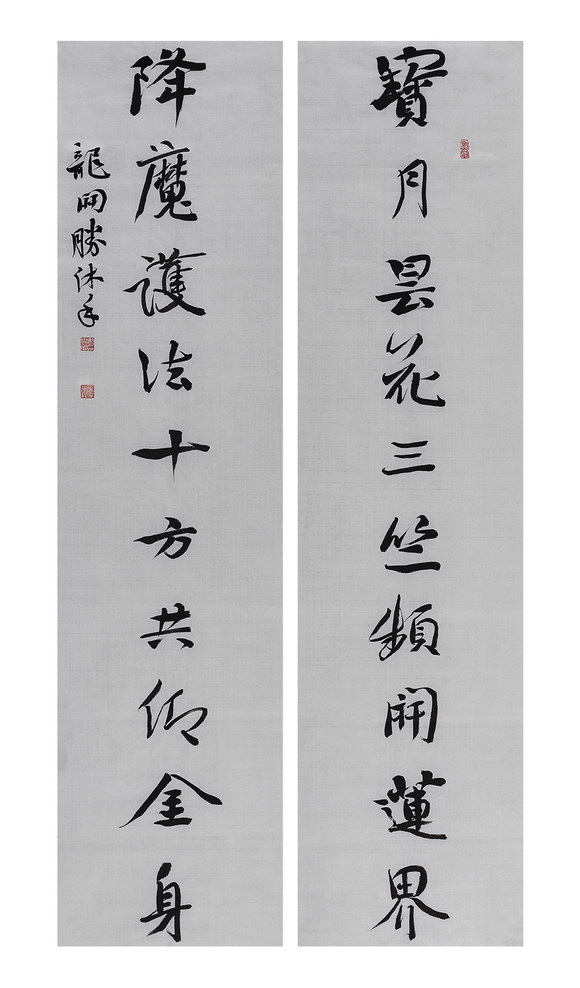 寶月曇花三竺頻開蓮界
降魔護法十方共仰金身
龍開勝沐手